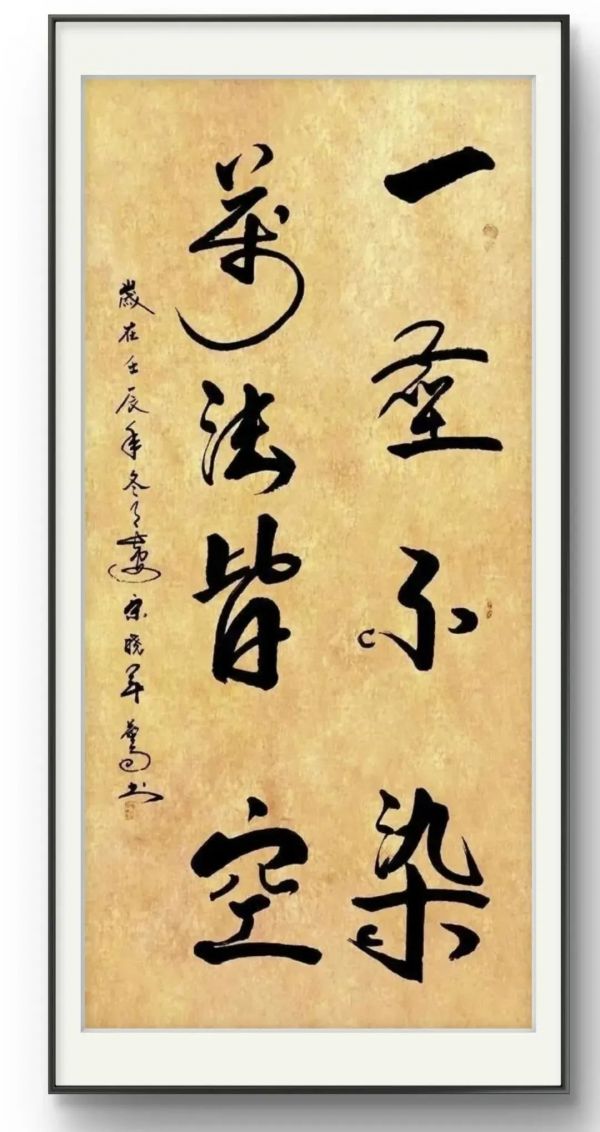 一塵不染
萬法皆空
歲在壬辰年冬月 宋曉軍 書